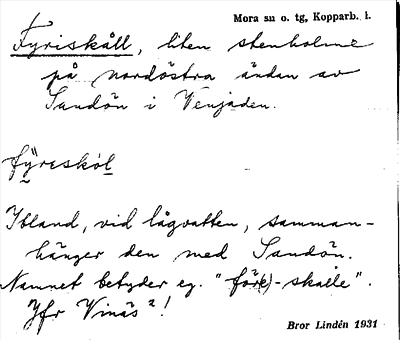 Mora sn o. tg, Kopparb. l.
Fyriskåll, liten stenholme
på nordöstra ändan av
Sandön i Venjaden.
fÿreskòl
Ibland, vid lågvatten, samman-
hänger den med Sandön.
Namnet betyder eg. "för(e)-skalle".
Jfr Vinäs 2!
Bror Lindén 1931